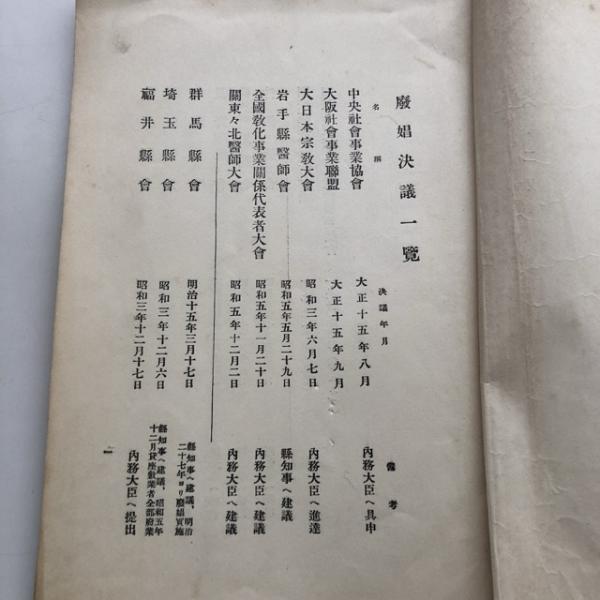 廢娼決議一覽
名稱　決議年月　備考
中央社會事業協會　大正十五年八月　內務大臣ヘ具申
大阪社會事業聯盟　大正十五年九月
大日本宗教大會　昭和三年六月七日　內務大臣ヘ進達
岩手縣醫師會　昭和五年五月二十九日　縣知事ヘ建議
全國敎化事業關係代表者大會　昭和五年十一月二十日　內務大臣ヘ建議
關東々北醫師大會　昭和五年十二月二日　內務大臣ヘ建議
群馬縣會　明治十五年三月十七日　縣知事ヘ建議、明治
二十七年ヨリ廢娼實施
埼玉縣會　昭和三年十二月六日　縣知事ヘ建議、昭和五年
十二月貸座敷業者全部廢業
福井縣會　昭和三年十二月十七日　內務大臣ヘ提出
一